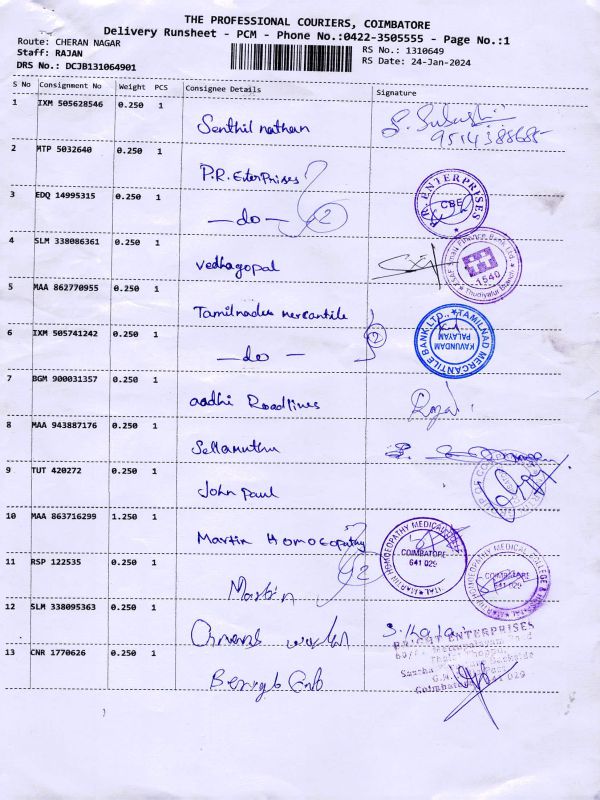 THE PROFESSIONAL COURIERS, COIMBATORE
Delivery Runsheet - PCM - Phone No.:0422-3505555 - Page No.:1
Route: CHERAN NAGAR
RS No.: 1310649
Staff: RAJAN
RS Date: 24-Jan-2024
DRS No.: DCJB131064901
S No Consignment No Weight PCS Consignee Details Signature
1 IXM 505628546 0.250 1 Senthil nathan
9514388685
2 MTP 5032640 0.250 1 P.R. Enterprises
3 EDQ 14995315 0.250 1 — do — 2
P.R. ENTERPRISES CBE
4 SLM 338086361 0.250 1 Vedhagopal
Finance Bank Ltd. 1540 Thudiyalur Branch
5 MAA 862770955 0.250 1 Tamilnadu mercantile
6 IXM 505741242 0.250 1 — do — 2
TAMILNAD MERCANTILE BANK LTD., KAVUNDAM PALAYAM
7 BGM 900031357 0.250 1 aadhi Roadlines
8 MAA 943887176 0.250 1 Sellamuthu
9 TUT 420272 0.250 1 John paul
10 MAA 863716299 1.250 1 Martin Homoeopathy
MARTIN HOMOEOPATHY MEDICAL COLLEGE & HOSPITAL COIMBATORE 641 029
MARTIN HOMOEOPATHY MEDICAL COLLEGE & HOSPITAL COIMBATORE 641 029
11 RSP 122535 0.250 1 Martin 2
12 SLM 338095363 0.250 1
ENTERPRISES
13 CNR 1770626 0.250 1
Coimbatore 641 029